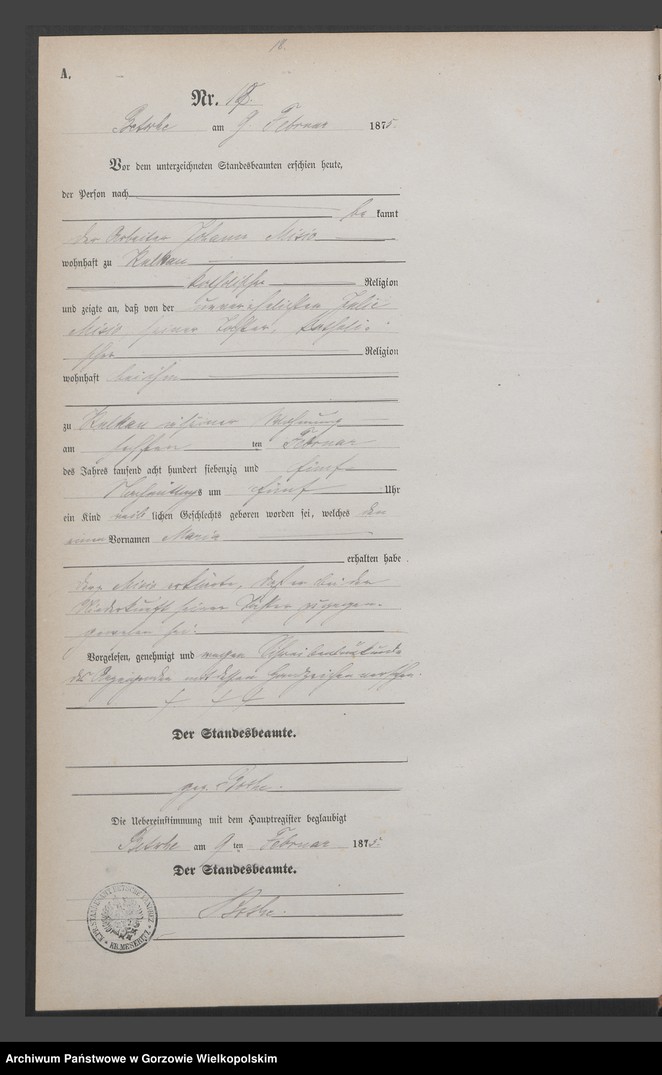 A.
Nr. 18.
Betsche am 9 Februar 1875.
Vor dem unterzeichneten Standesbeamten erschien heute,
der Person nach
be kannt
der Arbeiter Johann Misio
wohnhaft zu Kalkau
katholischer Religion
und zeigte an, daß von der unverehelichten Julie
Misio, seiner Tochter, katholi-
scher Religion
wohnhaft bei ihm
zu Kalkau in seiner Wohnung
am ten Februar
des Jahres tausend acht hundert siebenzig und fünf
Nachmittags um fünf Uhr
ein Kind weib lichen Geschlechts geboren worden sei, welches den
einen Vornamen Maria
erhalten habe
Misio erklärte, daß er bei der
Niederkunft seiner Tochter zugegen
gewesen sei.
Vorgelesen, genehmigt und wegen Schreibensunkunde
des mit dessen Handzeichen versehen.
† † †
Der Standesbeamte.
gez. Bothe.
Die Uebereinstimmung mit dem Hauptregister beglaubigt
Betsche am 9 ten Februar 1875.
Der Standesbeamte.
Bothe.
KR. MESERITZ
Archiwum Państwowe w Gorzowie Wielkopolskim